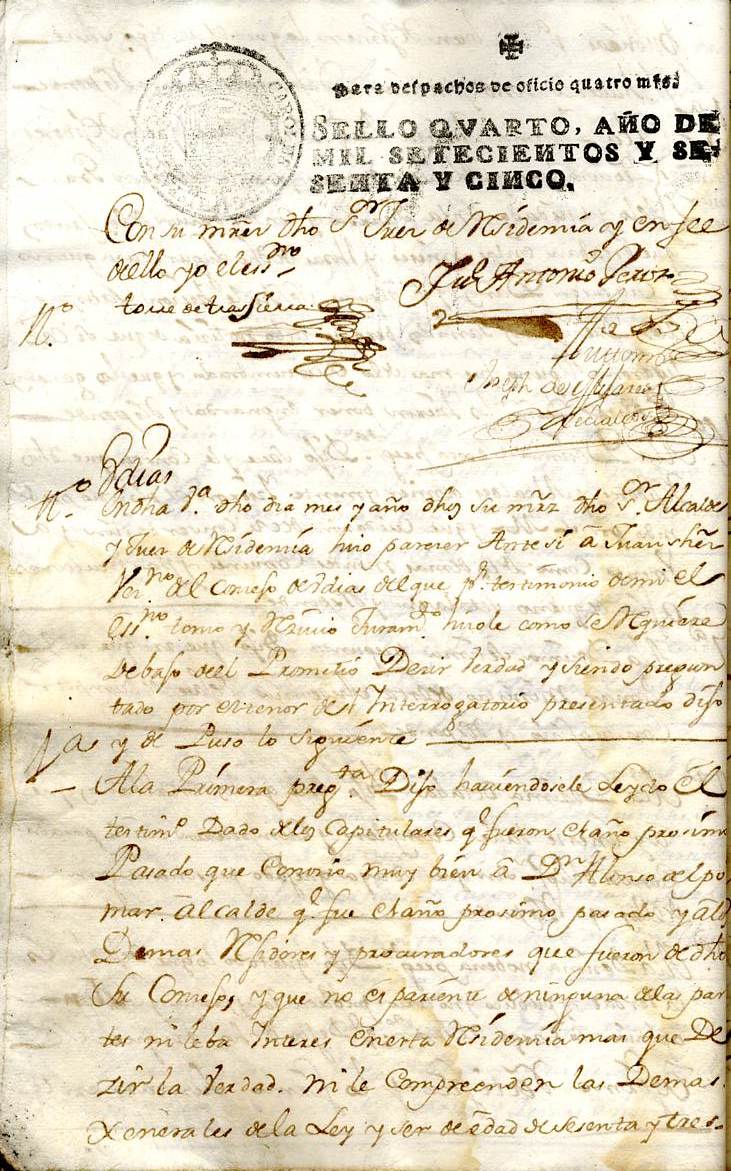 Para despachos de oficio quatro mrs.
SELLO QVARTO, AÑO DE
MIL SETECIENTOS Y SE-
SENTA Y CINCO.
CAROL
Con su mrz dho Sr Juez de Residemzia y en fee
de ello yo el essno
Juo Antonio
torre de trasSierra
No
Joseph de
dias
No
En dha va dho dia mes y año dhos su mrz dho Sr Alcalde
y Juez de Residemzia hizo parezer Ante si â Juan
Vezno del Conzejo de dias del que pr testimonio de mi el
essno tomo y Rezivio Juramto hizole como se Requiere
Debajo de el Prometio Dezir Verdad y siendo pregun
tado por el tenor del Interrogatorio presentado dijo
y de Puso lo siguiente
1a
Ala Primera pregta Dijo haviendosele Leydo el
testimo Dado de los Capitulares q fueron el año prosimo
Pasado que Conozio muy bien â Dn Alonso del po
mar Alcalde q fue el año prosimo pasado y alos
Demas Rejidores y procuradores que fueron de dho
Su Conzejo, y que no es pariente de ninguna de las par
tes ni leba Interes en esta Residemzia mas que De
zir la Verdad. Ni le Compreenden las Demas
Xenerales de la Ley y ser de edad de sesenta y tres